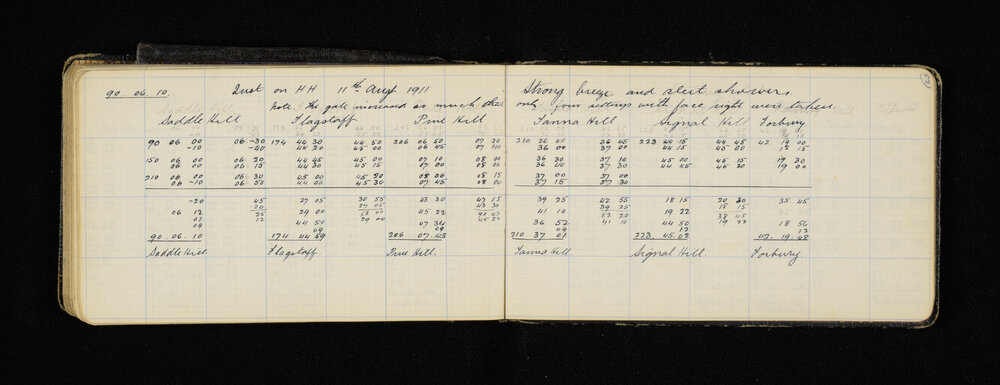 52
90. 06. 10. Inst on HH 11th Aug 1911 Strong breeze and sleet showers
Note. The gale increased so much that only four settings with face right were taken.
Saddle Hill Flagstaff Pine Hill Tanna Hill Signal Hill Forbury
90 06 00 06 -30 174 44 30 44 50 206 06 50 07 20 210 36 45 223 44 15 44 45 42 19 00
-10 -40 44 20 45 00 06 45 36 00 37 00 44 15 45 00 18 15
150 06 00 06 20 44 45 45 00 07 10 08 00 36 30 37 10 45 00 45 15 19 30
06 00 06 15 44 30 45 15 07 00 08 00 36 40 37 30 44 45 45 30 18 15
210 06 00 06 30 45 00 45 20 08 00 08 15 37 00 37 00
06 -10 06 50 44 00 45 30 07 45 08 00 37 15 37 30
-20 45 27 05 30 55 43 30 47 15 39 25 42 55 18 15 20 30 35 45
20 27 05 43 30 39 25 18 15
06 12 25 29 00 58 00 45 22 90 45 41 10 82 20 19 22 38 45
01 12 44 50 29 00 07 34 45 22 36 52 41 10 44 50 19 22 18 56
09 09 09 09 12 12
90. 06. 10 174 44 59 206 07. 43 210 37 01 223. 45. 02 42. 19. 08
Saddle Hill Flagstaff Pine Hill. Tanna Hill. Signal Hill. Forbury.